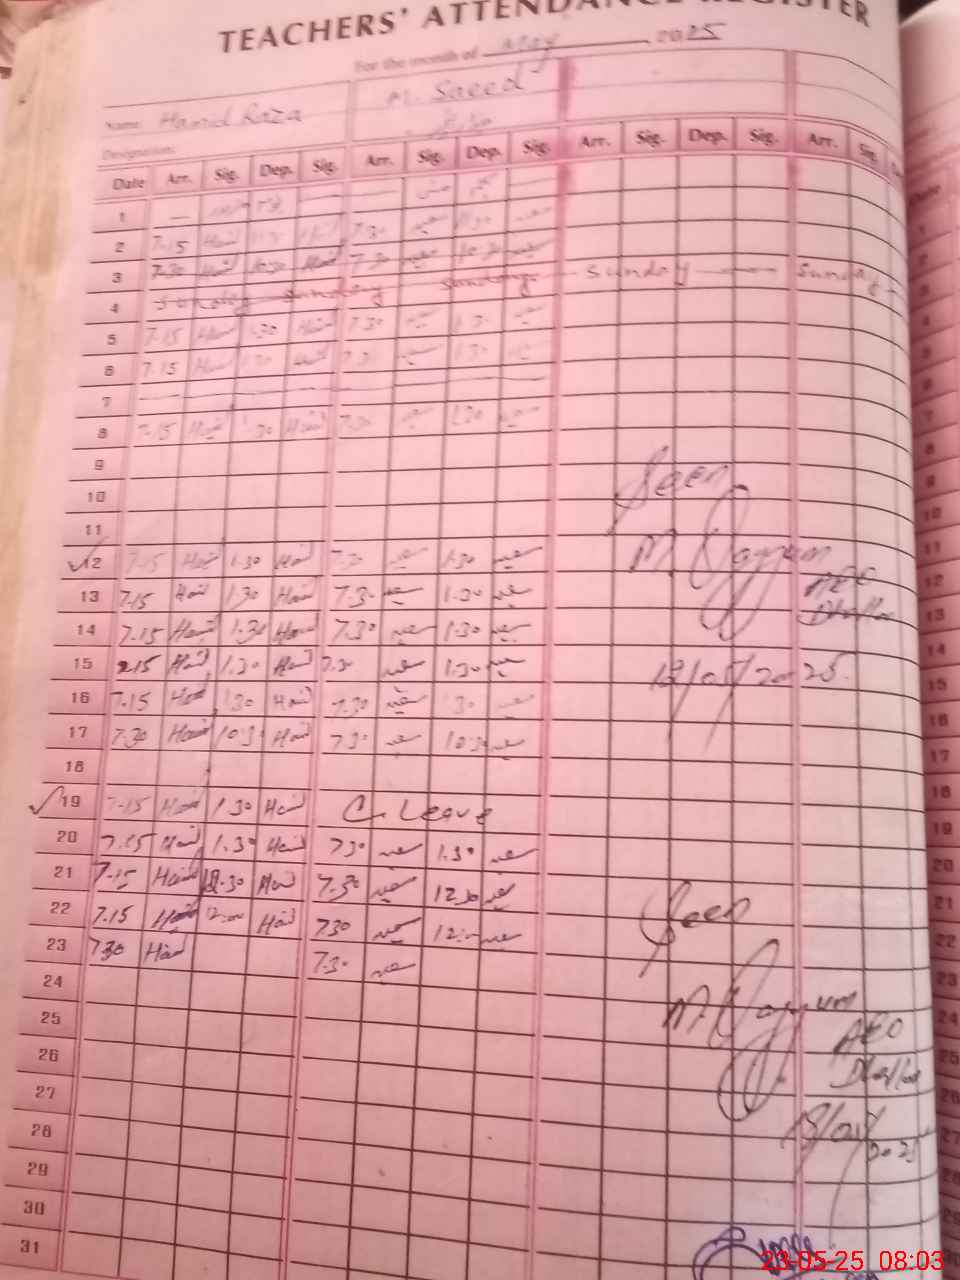 TEACHERS' ATTENDANCE REGISTER
For the month of May 2025
Name: Hamid Raza M. Saeed
Designation:
Date Arr. Sig. Dep. Sig. Arr. Sig. Dep. Sig. Arr. Sig. Dep. Sig. Arr. Sig.
1 —
2 7-15 Hamid 1.30 Hamid 7.30 سعید 1.30 سعید
3 7-30 Hamid 10.30 Hamid 7.30 سعید 10.30 سعید
4 Sunday Sunday Sunday Sunday Sunday
5 7.15 Hamid 1.30 Hamid 7.30 سعید 1.30 سعید
6 7.15 Hamid 1.30 Hamid 7.30 سعید 1.30 سعید
7
8 7-15 Hamid 1.30 Hamid 7.30 سعید 1.30 سعید
9
10 Seen
11
12 7-15 Hamid 1.30 Hamid 7.30 سعید 1.30 سعید M. Qayyum
13 7-15 Hamid 1.30 Hamid 7.30 سعید 1.30 سعید AEO
14 7-15 Hamid 1.30 Hamid 7.30 سعید 1.30 سعید
15 7.15 Hamid 1.30 Hamid 7.30 سعید 1.30 سعید 12/05/2025
16 7.15 Hamid 1.30 Hamid 7.30 سعید 1.30 سعید
17 7.30 Hamid 10.30 Hamid 7.30 سعید 10.30 سعید
18
19 7-15 Hamid 1.30 Hamid C. Leave
20 7.15 Hamid 1.30 Hamid 730 سعید 1.30 سعید
21 7-15 Hamid 12.30 Hamid 7.30 سعید 12.30 سعید
22 7.15 Hamid 12:00 Hamid 730 سعید 12:00 سعید Seen
23 730 Hamid 7.30 سعید
24
25 M. Qayyum
26 AEO
27
28
29
30
31
23-05-25 08:03